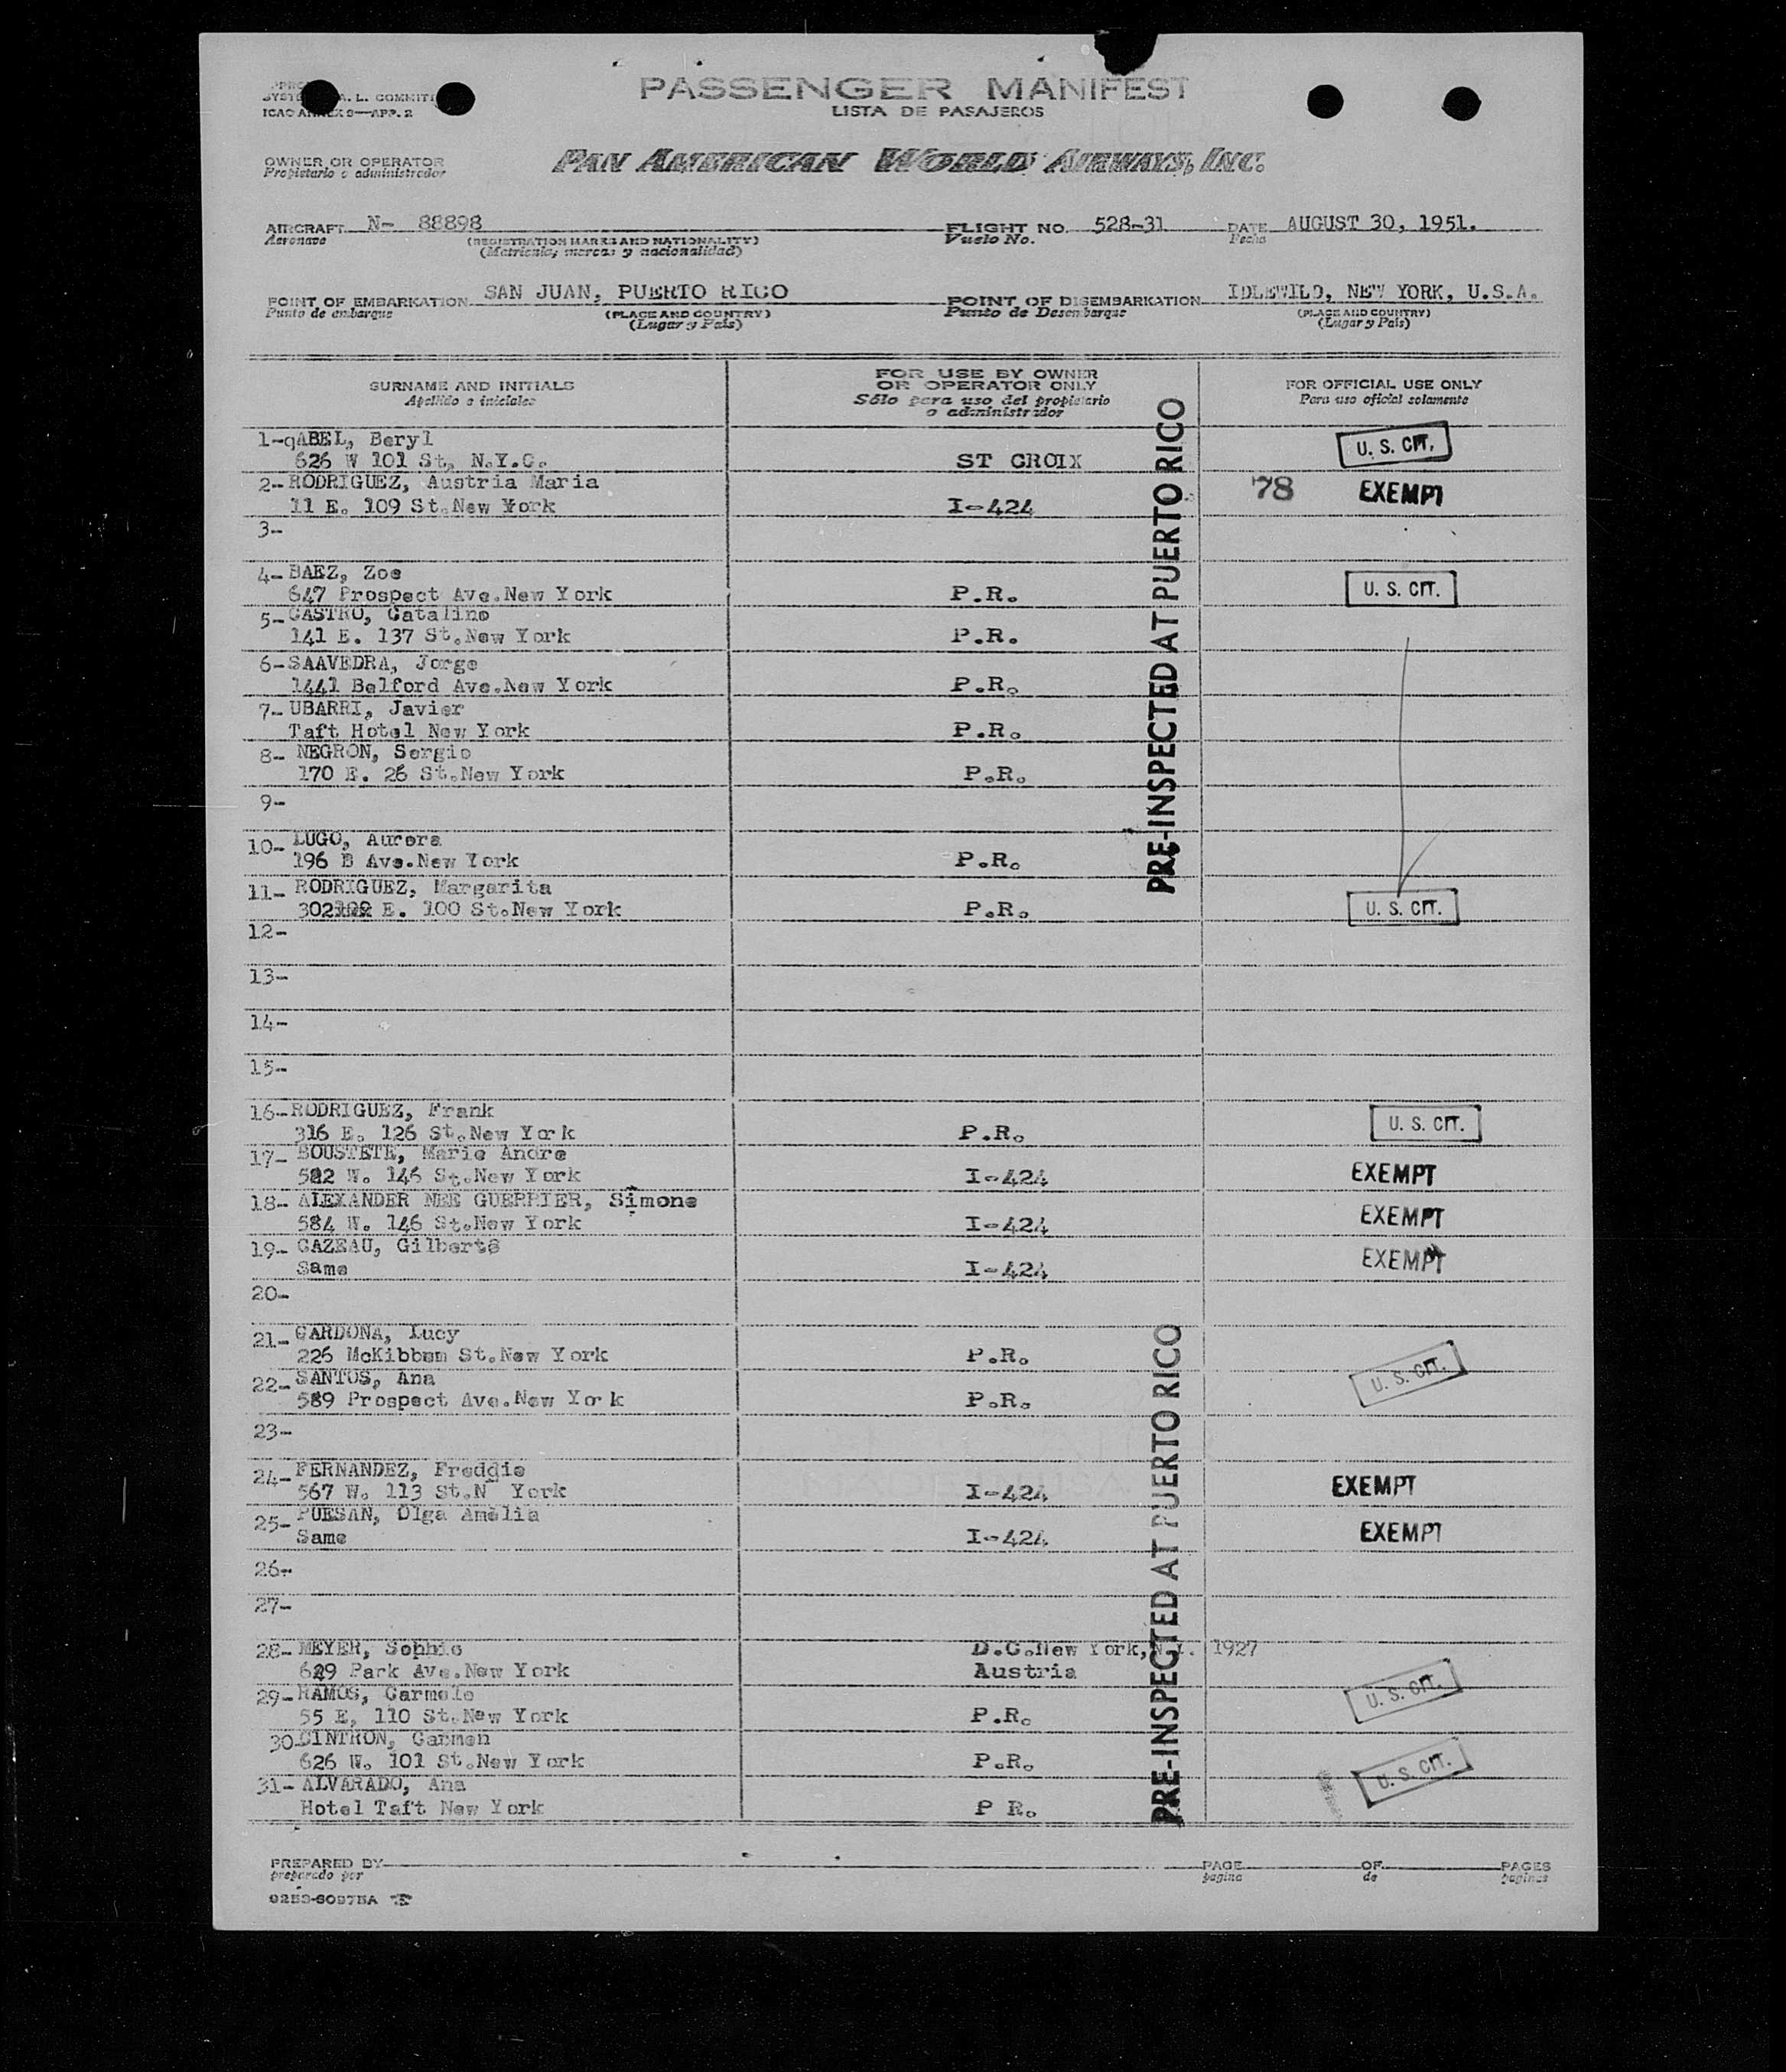 PASSENGER MANIFEST
LISTA DE PASAJEROS
A. L. COMMIT
ICAO ANNEX 9—APP. 2
OWNER OR OPERATOR
Propietario o administrador
PAN AMERICAN WORLD AIRWAYS, INC.
AIRCRAFT N- 88898 FLIGHT NO. 528-31 DATE AUGUST 30, 1951.
Aeronave (REGISTRATION MARKS AND NATIONALITY) Vuelo No. Fecha
(Matricula, marcas y nacionalidad)
POINT OF EMBARKATION SAN JUAN, PUERTO RICO POINT OF DISEMBARKATION IDLEWILD, NEW YORK, U.S.A.
Punto de embarque (PLACE AND COUNTRY) Punto de Desembarque (PLACE AND COUNTRY)
(Lugar y País) (Lugar y País)
SURNAME AND INITIALS FOR USE BY OWNER OR OPERATOR ONLY FOR OFFICIAL USE ONLY
Apellido e iniciales Sólo para uso del propietario o administrador Para uso oficial solamente
1-qABEL, Beryl U. S. CIT.
626 W 101 St, N.Y.C. ST CROIX
2-RODRIGUEZ, Austria Maria 78 EXEMPT
11 E. 109 St.New York I-424
3-
4-BAEZ, Zoe U. S. CIT.
647 Prospect Ave.New York P.R.
5-CASTRO, Catalino
141 E. 137 St.New York P.R.
6-SAAVEDRA, Jorge
1441 Belford Ave.New York P.R.
7-UBARRI, Javier
Taft Hotel New York P.R.
8- NEGRON, Sergio
170 E. 26 St.New York P.R.
9-
10-LUGO, Aurora
196 B Ave.New York P.R.
11- RODRIGUEZ, Margarita
302 E. 100 St.New York P.R. U. S. CIT.
12-
13-
14-
15-
PRE-INSPECTED AT PUERTO RICO
16-RODRIGUEZ, Frank U. S. CIT.
316 E. 126 St.New York P.R.
17- BOUSTETE, Marie Andre EXEMPT
582 W. 146 St.New York I-424
18- ALEXANDER NEE GUERRIER, Simone EXEMPT
584 W. 146 St.New York I-424
19- CAZEAU, Gilberte EXEMPT
Same I-424
20-
21-CARDONA, Lucy
226 McKibbem St.New York P.R. U. S. CIT.
22-SANTOS, Ana
589 Prospect Ave.New York P.R.
23-
24-FERNANDEZ, Freddie EXEMPT
567 W. 113 St.N York I-424
25-PUESAN, Olga Amelia EXEMPT
Same I-424
26-
27-
28- MEYER, Sophie D.C.New York, 1927
629 Park Ave.New York Austria
29-RAMOS, Carmelo U. S. CIT.
55 E, 110 St.New York P.R.
30 CINTRON, Carmen
626 W. 101 St.New York P.R. U. S. CIT.
31- ALVARADO, Ana
Hotel Taft New York P R.
PRE-INSPECTED AT PUERTO RICO
PREPARED BY PAGE OF PAGES
preparado por pagina de paginas